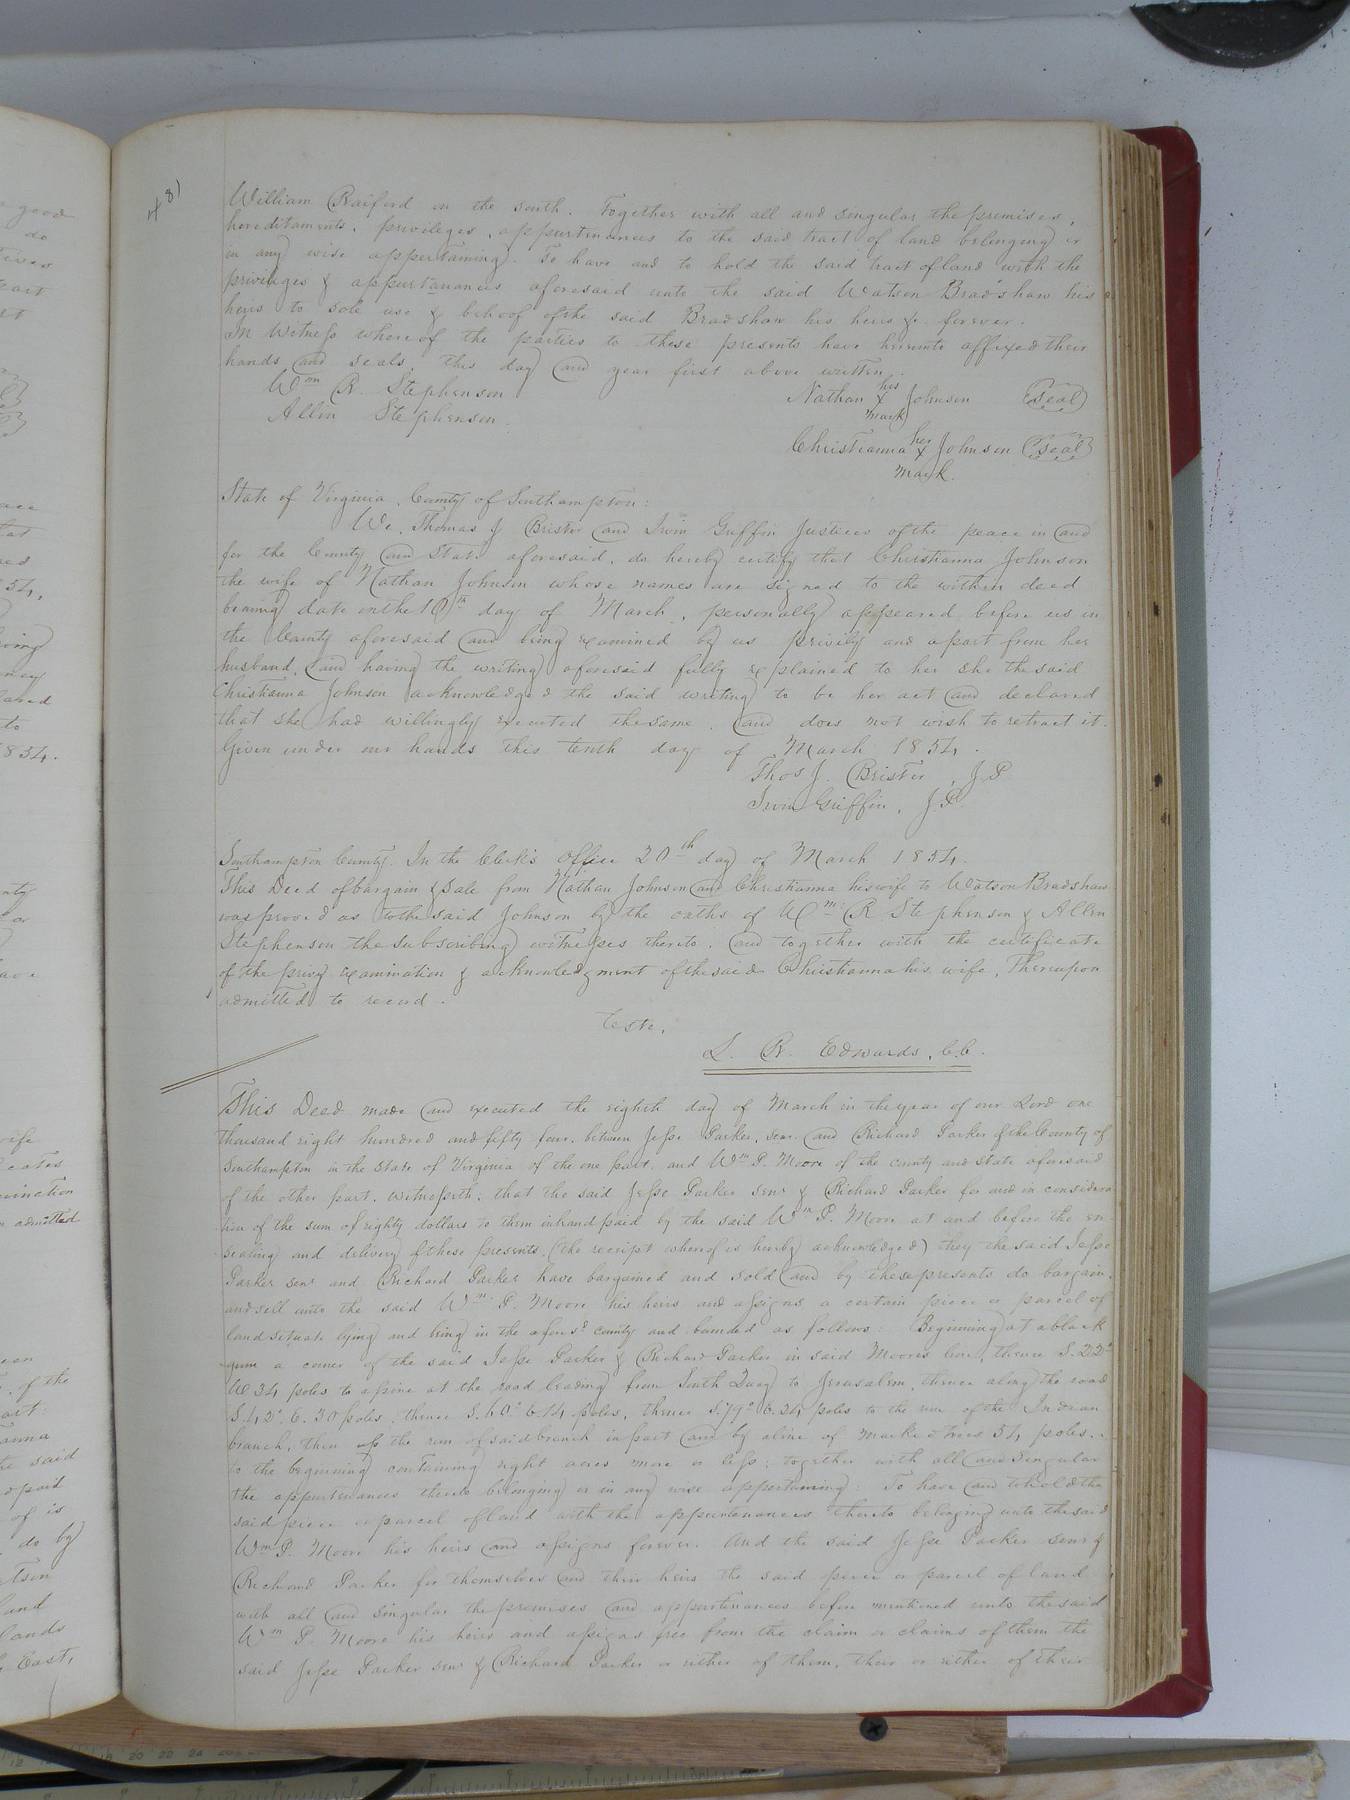 481
William Raiford on the south. Together with all and singular the premises,
hereditaments, privileges, appurtenances to the said tract of land belonging or
in any wise appertaining. To have and to hold the said tract of land with the
privileges & appurtanances aforesaid unto the said Watson Bradshaw his
heirs to sole use & behoof of the said Bradshaw his heirs &c forever.
In Witness whereof the parties to these presents have hereunto affixed their
hands and seals this day and year first above written.
Wm R. Stephenson
Allen Stephenson.
Nathan his x mark Johnson (Seal)
Christianna her x mark Johnson (Seal)
State of Virginia, County of Southampton:
We, Thomas J Brister and Irvin Griffin Justices of the peace in and
for the County and State aforesaid, do hereby certify that Christianna Johnson
the wife of Nathan Johnson whose names are signed to the within deed
bearing date on the 10th day of March, personally appeared before us in
the County aforesaid and being examined by us privily and apart from her
husband, and having the writing aforesaid fully explained to her she the said
Christianna Johnson acknowledged the said writing to be her act and declared
that she had willingly executed the same and does not wish to retract it.
Given under our hands this tenth day of March 1854.
Thos J. Brister, J.P
Irvin Griffin, J.P
Southampton County. In the Clerk's Office 20th day of March 1854.
This Deed of bargain & Sale from Nathan Johnson and Christianna his wife to Watson Bradshaw
was proved as to the said Johnson by the oaths of Wm R Stephenson & Allen
Stephenson the subscribing witnesses thereto, and together with the certificate
of the privy examination & acknowledgment of the said Christianna his wife, Thereupon
admitted to record.
Teste,
L. R. Edwards, C.C.
This Deed made and executed the eighth day of March in the year of our Lord one
thousand eight hundred and fifty four, between Jesse Parker, senr and Richard Parker of the County of
Southampton in the State of Virginia of the one part, and Wm P. Moore of the county and state aforesaid
of the other part, witnesseth, that the said Jesse Parker senr & Richard Parker for and in considera
tion of the sum of eighty dollars to them in hand paid by the said Wm P. Moore at and before the en
sealing and delivery of these presents, (the receipt whereof is hereby acknowledged) they the said Jesse
Parker senr and Richard Parker have bargained and sold and by these presents do bargain,
and sell unto the said Wm P. Moore his heirs and assigns a certain piece or parcel of
land situate lying and being in the aforesd county and bounded as follows: Beginning at a black
gum a corner of the said Jesse Parker & Richard Parker in said Moores line, thence S. 22°
W 34 poles to a pine at the road leading from South Quay to Jerusalem, thence along the road
S. 42° E. 30 poles, thence S. 60° E 14 poles, thence S. 79° E. 24 poles to the run of the Indian
branch, then up the run of said branch in part and by a line of marked trees 54 poles
to the beginning containing eight acres more or less; together with all and singular
the appurtenances thereto belonging or in any wise appertaining: To have and to hold the
said piece or parcel of land with the appurtenances thereto belonging unto the said
Wm P. Moore his heirs and assigns forever. And the said Jesse Parker senr &
Richard Parker for themselves and their heirs the said piece or parcel of land
with all and singular the premises and appurtenances before mentioned unto the said
Wm P. Moore his heirs and assigns free from the claim or claims of them the
said Jesse Parker senr & Richard Parker or either of them, their or either of their